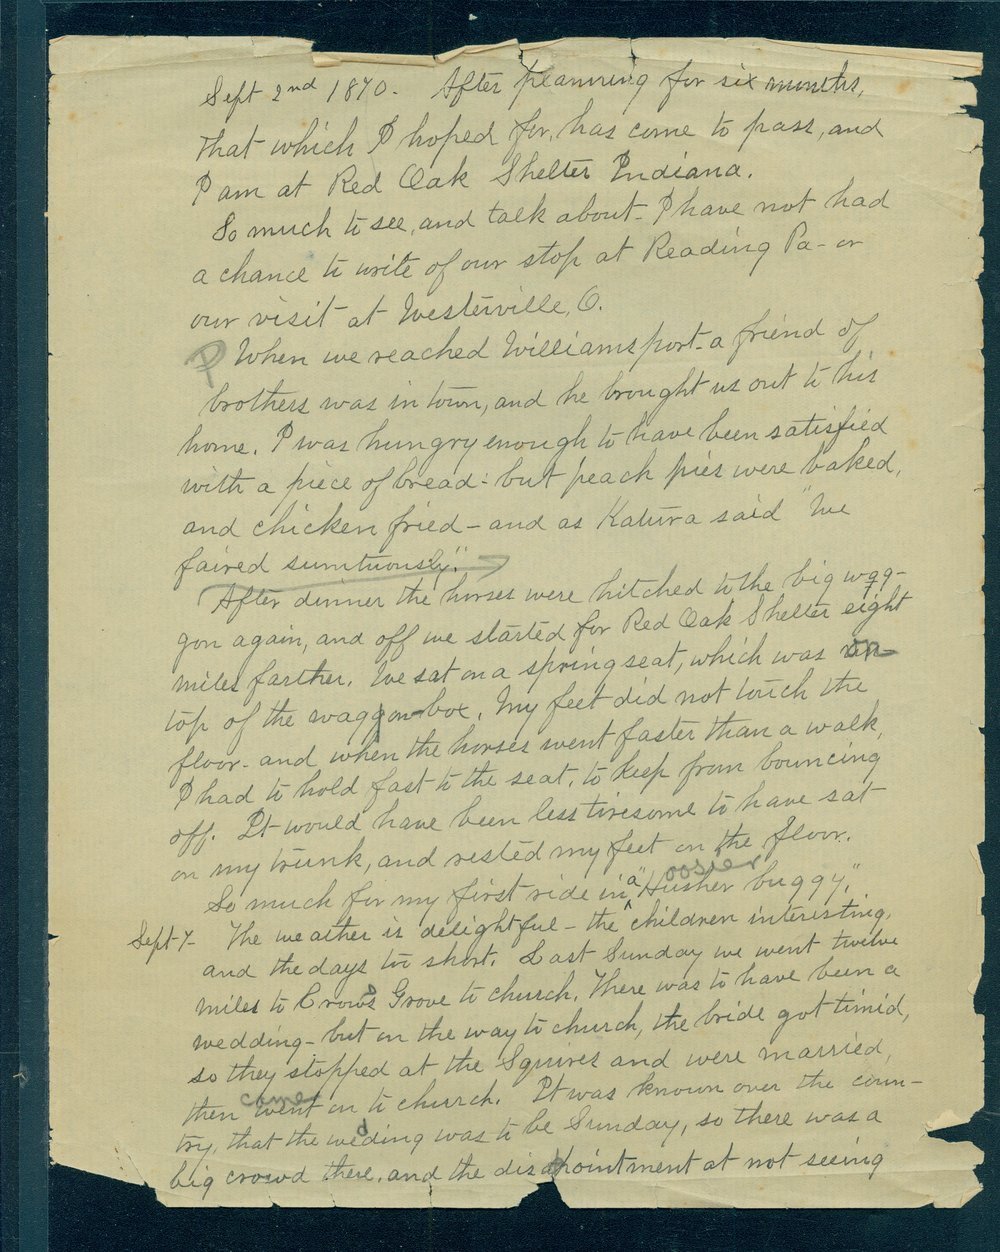 Sept 2nd 1870. After planning for six months,
that which I hoped for, has come to pass, and
I am at Red Oak Shelter Indiana.
So much to see, and talk about - I have not had
a chance to write of our stop at Reading Pa - or
our visit at Westerville, O.
P When we reached Williamsport - a friend of
brothers was in town, and he brought us out to his
home. I was hungry enough to have been satisfied
with a piece of bread - but peach pies were baked,
and chicken fried - and as Katura said "We
faired sumtuously."
After dinner the horses were hitched to the big wag-
gon again, and off we started for Red Oak Shelter eight
miles farther. We sat on a spring seat, which was on
top of the waggon-box. My feet did not touch the
floor - and when the horses went faster than a walk,
I had to hold fast to the seat, to keep from bouncing
off. It would have been less tiresome to have sat
on my trunk, and rested my feet on the floor.
oosier
So much for my first ride in a "Husher buggy".
Sept 7 - The weather is delightful - the children interesting,
and the days to short. Last Sunday we went twelve
miles to Crows Grove to church. There was to have been a
wedding - but on the way to church, the bride got timid,
so they stopped at the Squires and were married,
came
then went on to church. It was known over the coun-
try, that the wedding was to be Sunday, so there was a
big crowd there, and the disapointment at not seeing